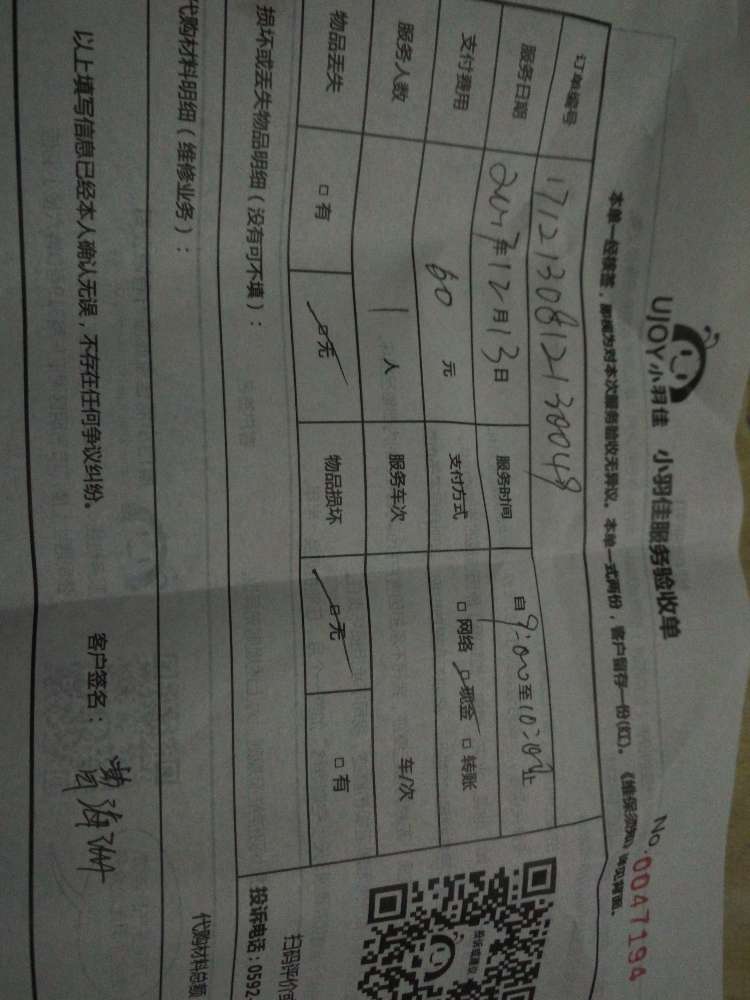 UJOY小羽佳 小羽佳服务验收单 No.0047194
本单一经接签，即视为对本次服务验收无异议。本单一式两份，客户留存一份(红)。《维保须知》详见背面。
订单编号 1712130812130049
服务日期 2017年12月13日 服务时间 自9:00至10:00止
支付费用 60元 支付方式 □网络 □现金 □转账
服务人数 1人 服务车次 车/次
物品丢失 □有 □无 物品损坏 □无 □有
损坏或丢失物品明细（没有可不填）：
代购材料明细（维修业务）：
代购材料总额
以上填写信息已经本人确认无误，不存在任何争议纠纷。 客户签名：
投诉或建议
扫码评价
投诉电话：0592